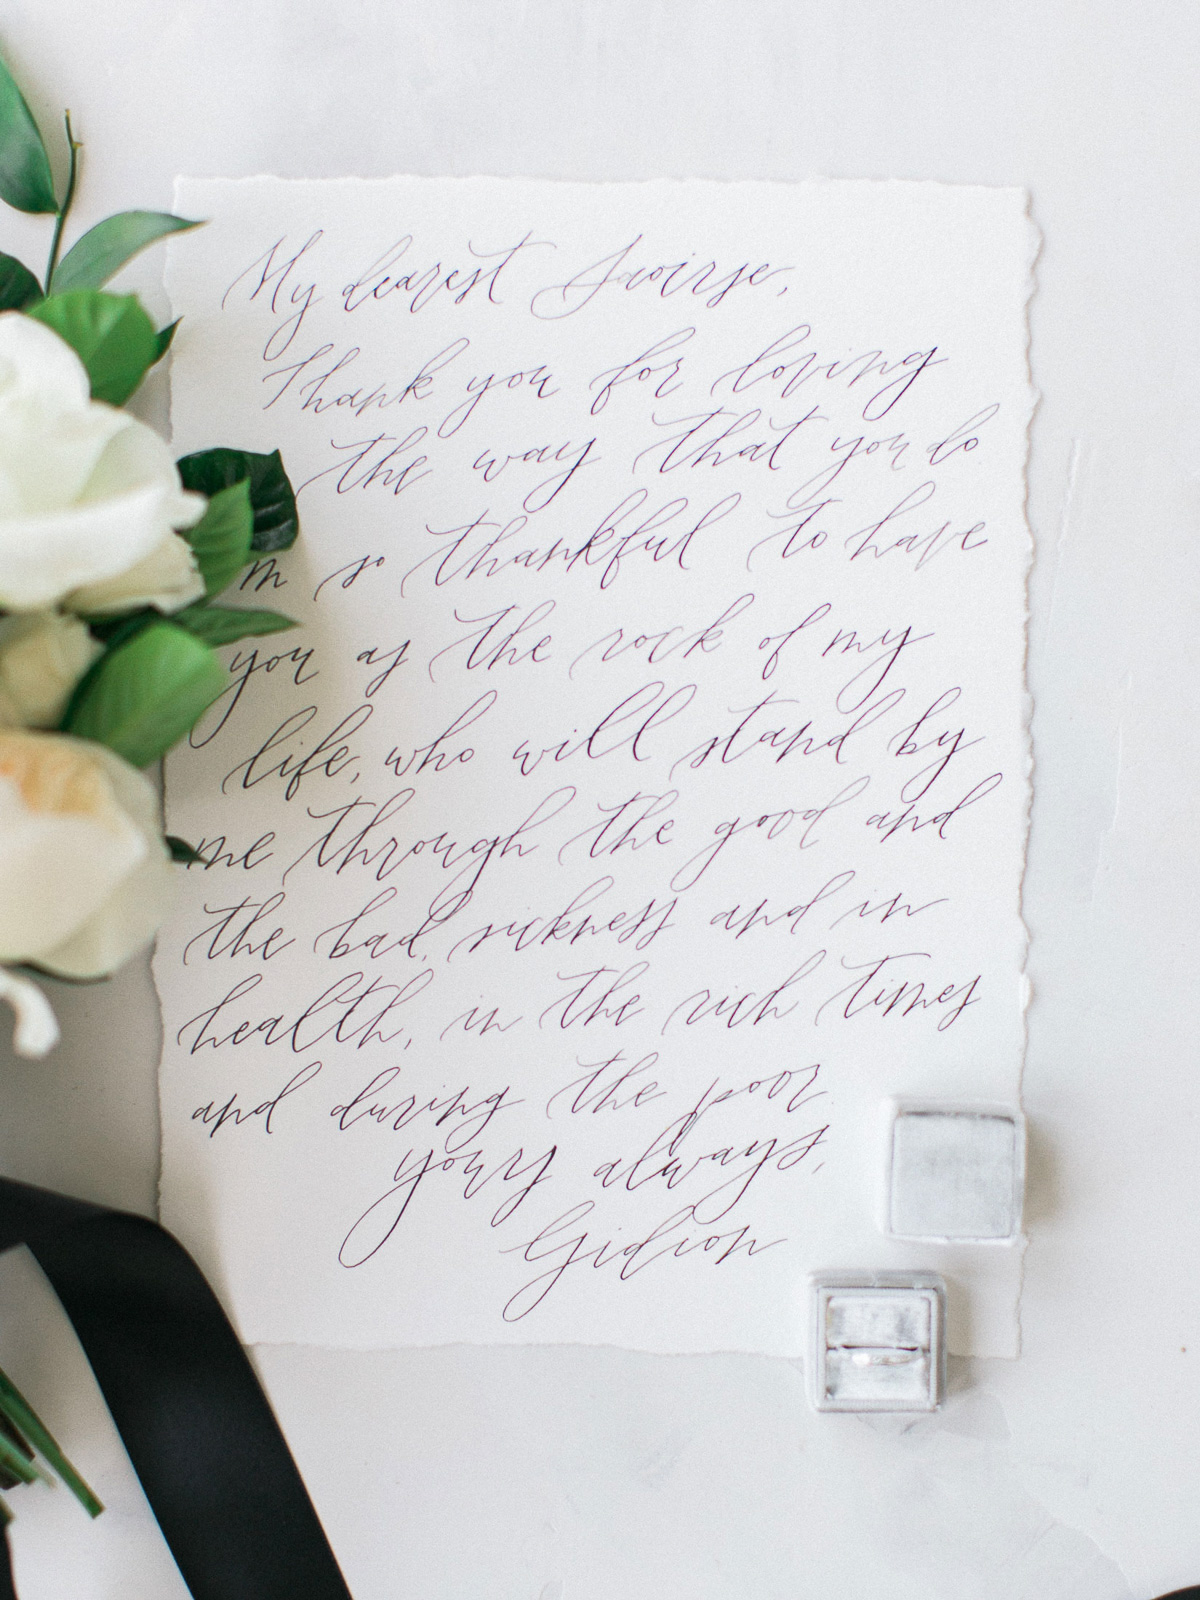 My dearest Saoirse,
Thank you for loving
the way that you do
m so thankful to have
you as the rock of my
life, who will stand by
me through the good and
the bad, sickness and in
health, in the rich times
and during the poor
yours always,
Gidion